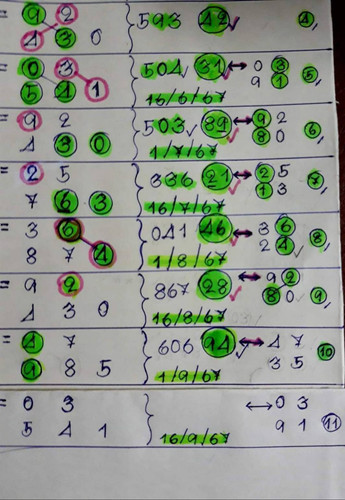 = 9 2 } 593 42 4,
1 3 0
= 0 3 } 504 31 ↔ 0 3
5 4 1 16/6/67 9 1 5,
= 9 2 } 503 89 ↔ 9 2
1 3 0 1/7/67 8 0 6,
= 2 5 } 336 21 ↔ 2 5
7 6 3 16/7/67 1 3 7,
= 3 6 } 041 46 ↔ 3 6
8 7 4 1/8/67 2 4 8,
= 9 2 } 867 28 ↔ 9 2
1 3 0 16/8/67 8 0 9,
= 4 7 } 606 94 ↔ 4 7
9 8 5 1/9/67 3 5 10
= 0 3 } ↔ 0 3
5 4 1 16/9/67 9 1 11